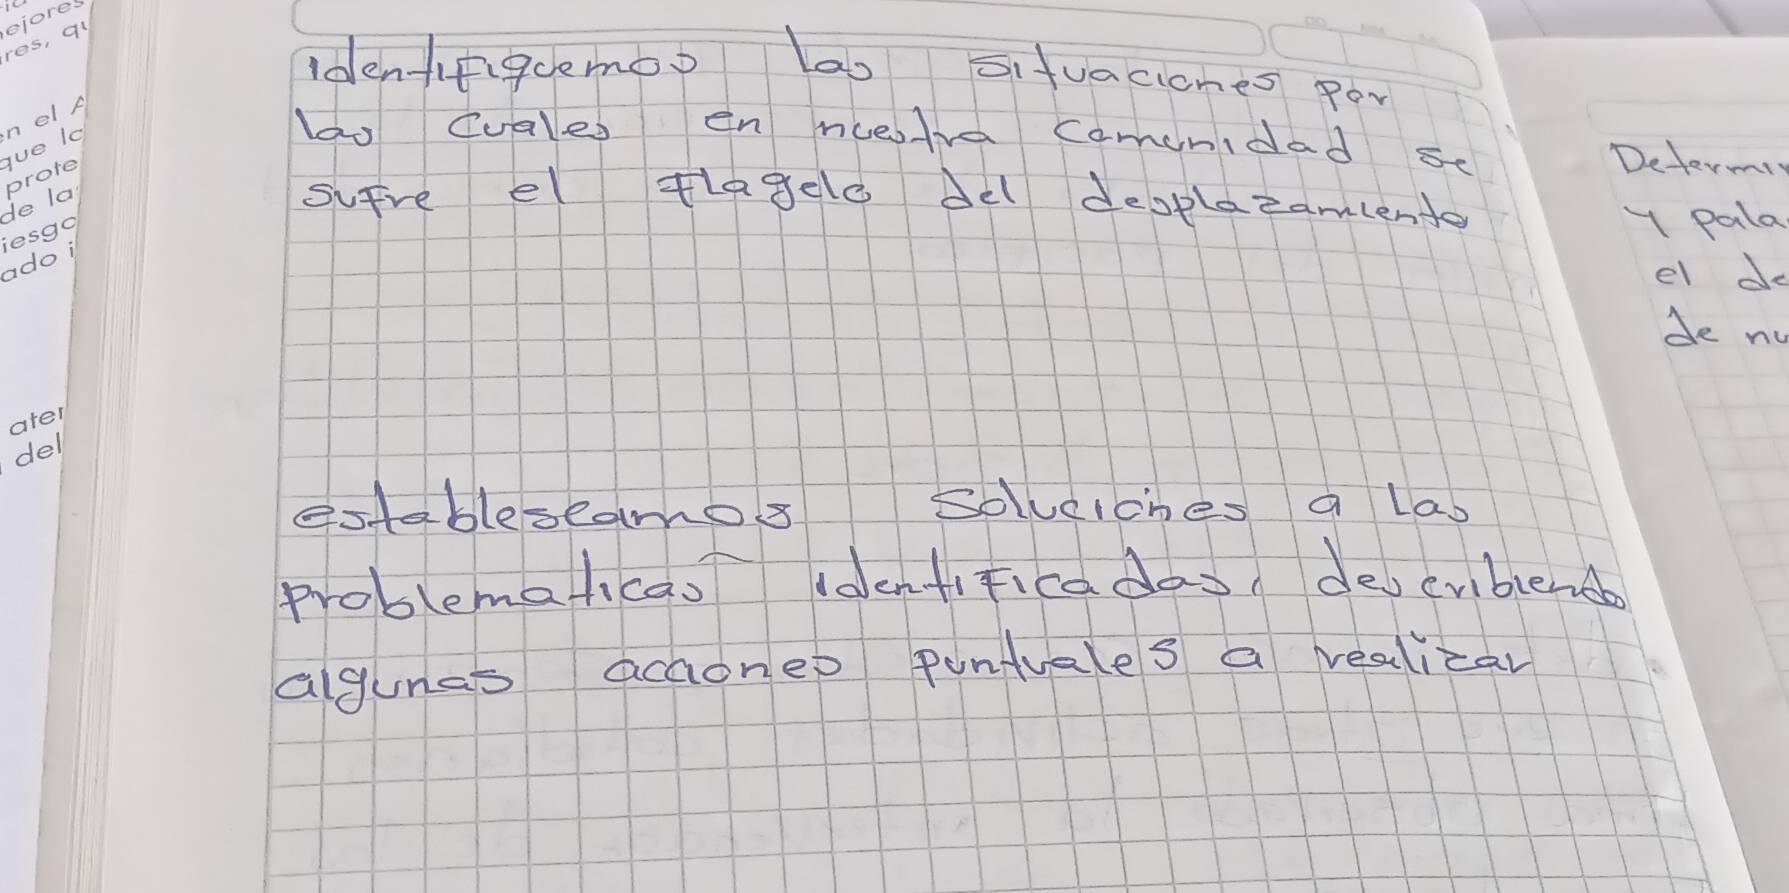 ejores
res, qu
en el A
que lo
prote
de la
iesgo
ado i
ater
del
identifiquemos las situaciones por
las cuales en nuestra comunidad se
sufre el flagelo del desplazamiento
establescamos soluciones a las
problematicas identificadas, describiendo
algunas acciones puntuales a realizar
Determin
y pala
el de
de nu